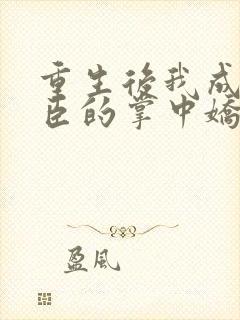 重生後我成
臣的掌中嬌
盈風